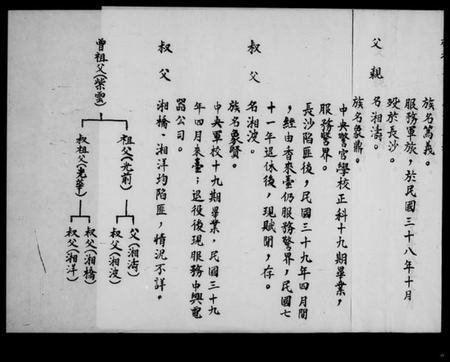 族名篤義。
服務軍旅，於民國三十八年十月
歿於長沙。
父親 名湘濤。
族名象鼎。
中央警官學校正科十九期畢業，
服務警界。
長沙陷匪後，民國三十九年四月間
，經由香來臺仍服務警界，民國七
十一年退休後，現賦閒，存。
叔父 名湘波。
族名象賢。
中央軍校十九期畢業，民國三十九
年四月來臺；退役後現服務中興電
器公司。
叔父 湘橋、湘洋均陷匪，情況不詳。
曾祖父(紫雲)
祖父(光前)
叔祖父(光華)
父(湘濤)
叔父(湘波)
叔父(湘橋)
叔父(湘洋)